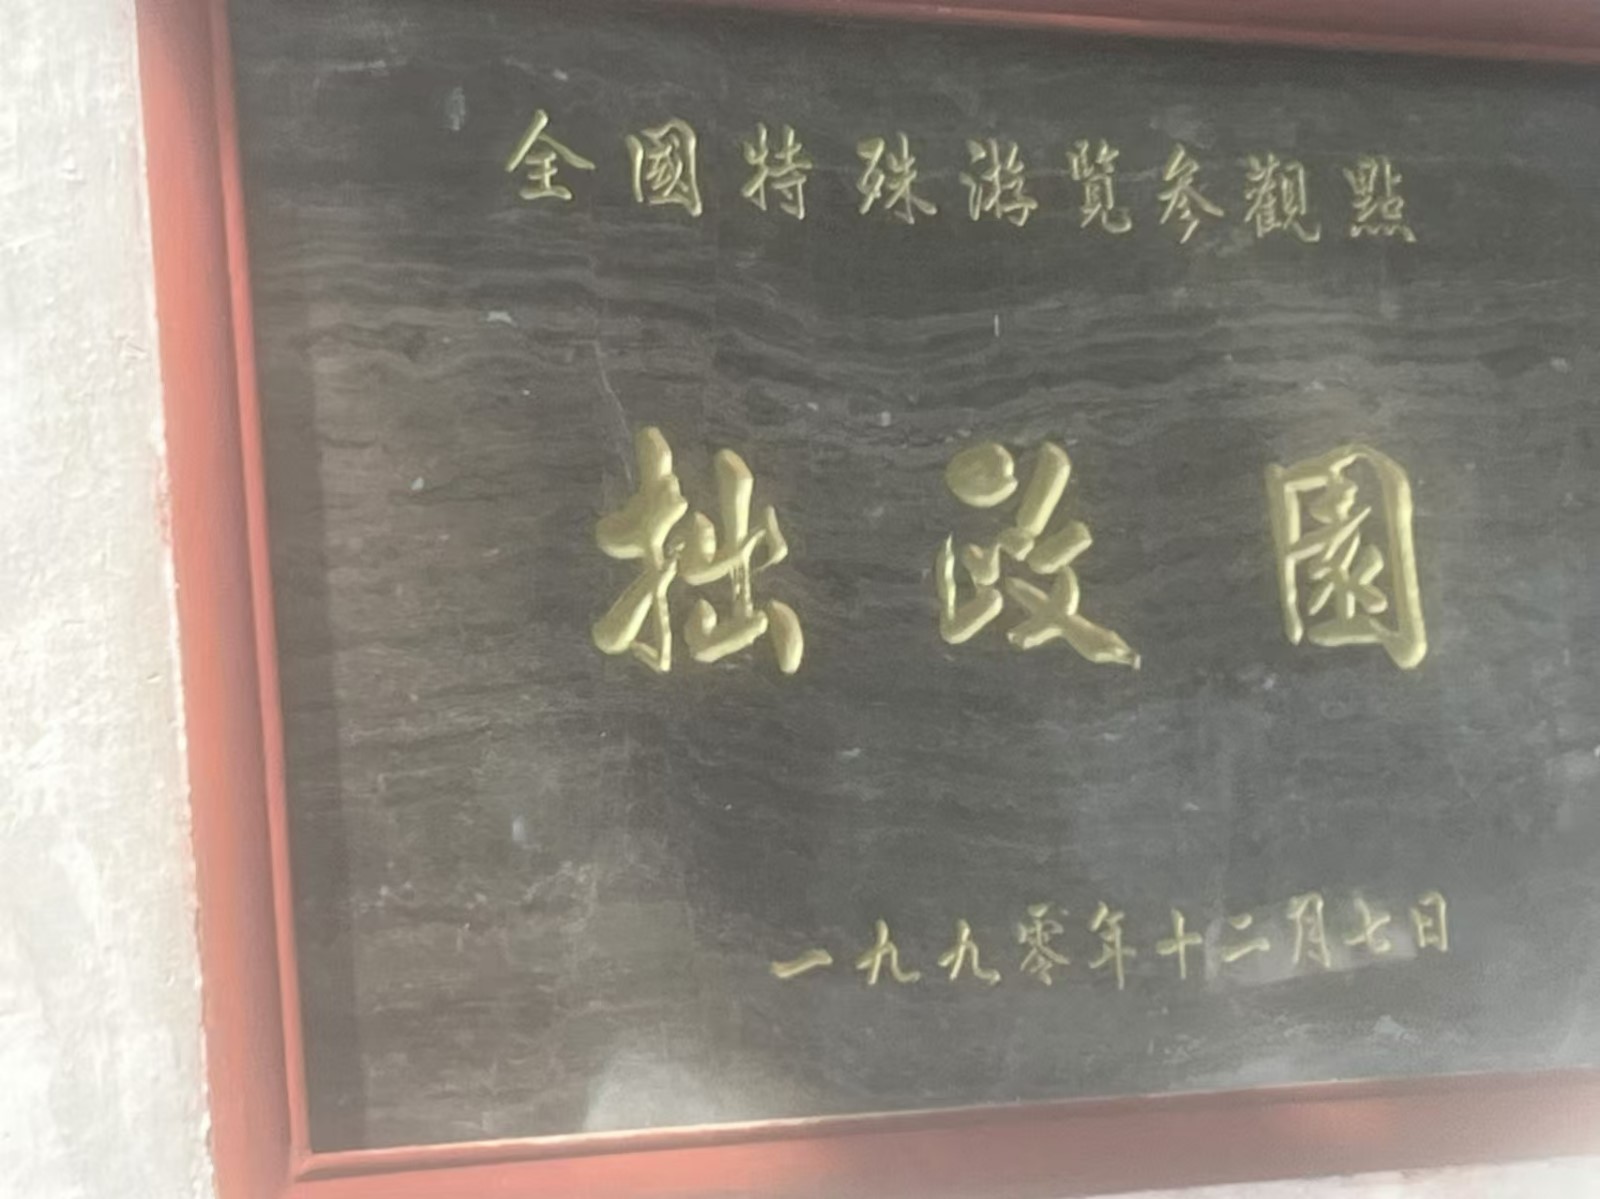 全國特殊游覽参觀點
拙政園
一九九零年十二月七日